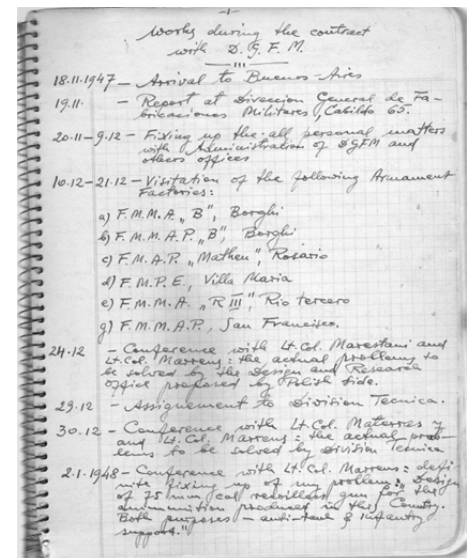 -1-
Works during the contract
with D.G.F.M.
18.11.1947 - Arrival to Buenos-Aires
19.11. - Report at Direccion General de Fa-
bricaciones Militares, Cabildo 65.
20.11-9.12 - Fixing up the all personal matters
with Administration of DGFM and
others offices
10.12-21.12 - Visitation of the following Armament
Factories:
a) F.M.M.A. „B", Borghi
b) F.M.M.A.P. „B", Borghi
c) F.M.A.P. „Matheu", Rosario
d) F.M.P.E., Villa Maria
e) F.M.M.A. „R III", Rio tercero
g) F.M.M.A.P., San Francisco.
24.12 - Conference with Lt. Col. Marestani and
Lt. Col. Marrens: the actual problems to
be solved by the Design and Research
Office proposed by Polish side.
29.12 - Assignement to Division Tecnica.
30.12 - Conference with Lt. Col. Materras y
and Lt. Col. Marrens: the actual prob-
lems to be solved by Division Tecnica
2.1.1948 - Conference with Lt. Col. Marrens: defi-
nite fixing up of my problem: „Design
of 75 mm cal recoilless gun for the
ammunition produced in this Country.
Both purposes - anti-tank & infantry
support."